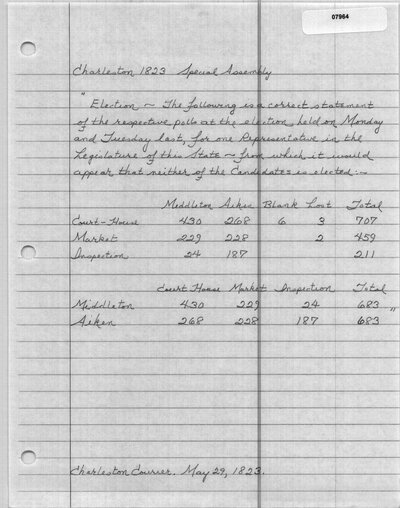 07964
Charleston 1823 Special Assembly
"
Election ~ The following is a correct statement
of the respective polls at the election held on Monday
and Tuesday last, for one Representative in the
Legislature of this State ~ from which it would
appear that neither of the Candidates is elected:~
Middleton Aiken Blank Lost Total
Court-House 430 268 6 3 707
Market 229 228 2 459
Inspection 24 187 211
Court House Market Inspection Total
Middleton 430 229 24 683
Aiken 268 228 187 683 "
Charleston Courier. May 29, 1823.